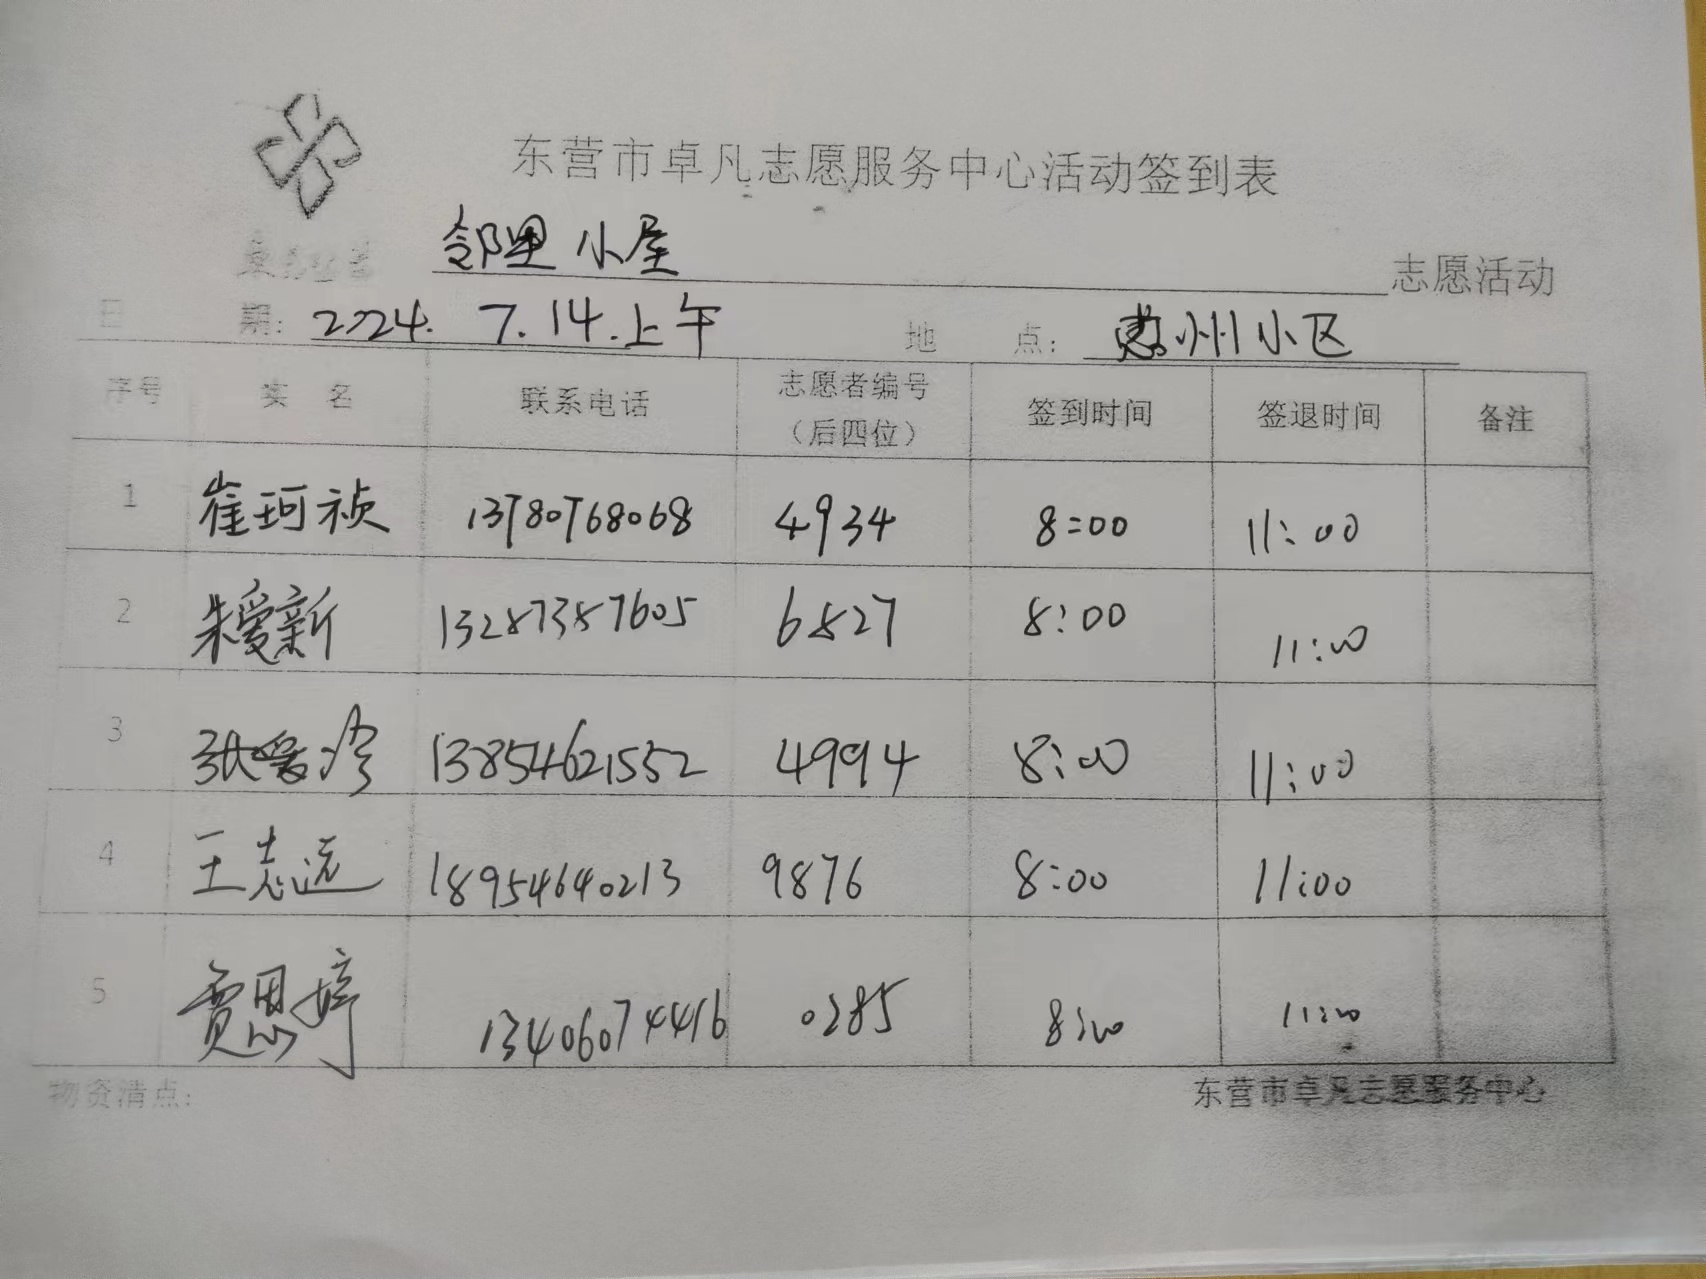 东营市卓凡志愿服务中心活动签到表
邻里小屋 志愿活动
日期: 2024. 7. 14. 上午 地点: 惠州小区
序号 实名 联系电话 志愿者编号（后四位） 签到时间 签退时间 备注
1 崔珂祯 13780768068 4934 8:00 11:00
2 朱爱新 13287387605 6827 8:00 11:00
3 张爱玲 13854621552 4994 8:00 11:00
4 王志远 18954640213 9876 8:00 11:00
5 贾思婷 13406074416 0285 8:00 11:00
物资清点:
东营市卓凡志愿服务中心